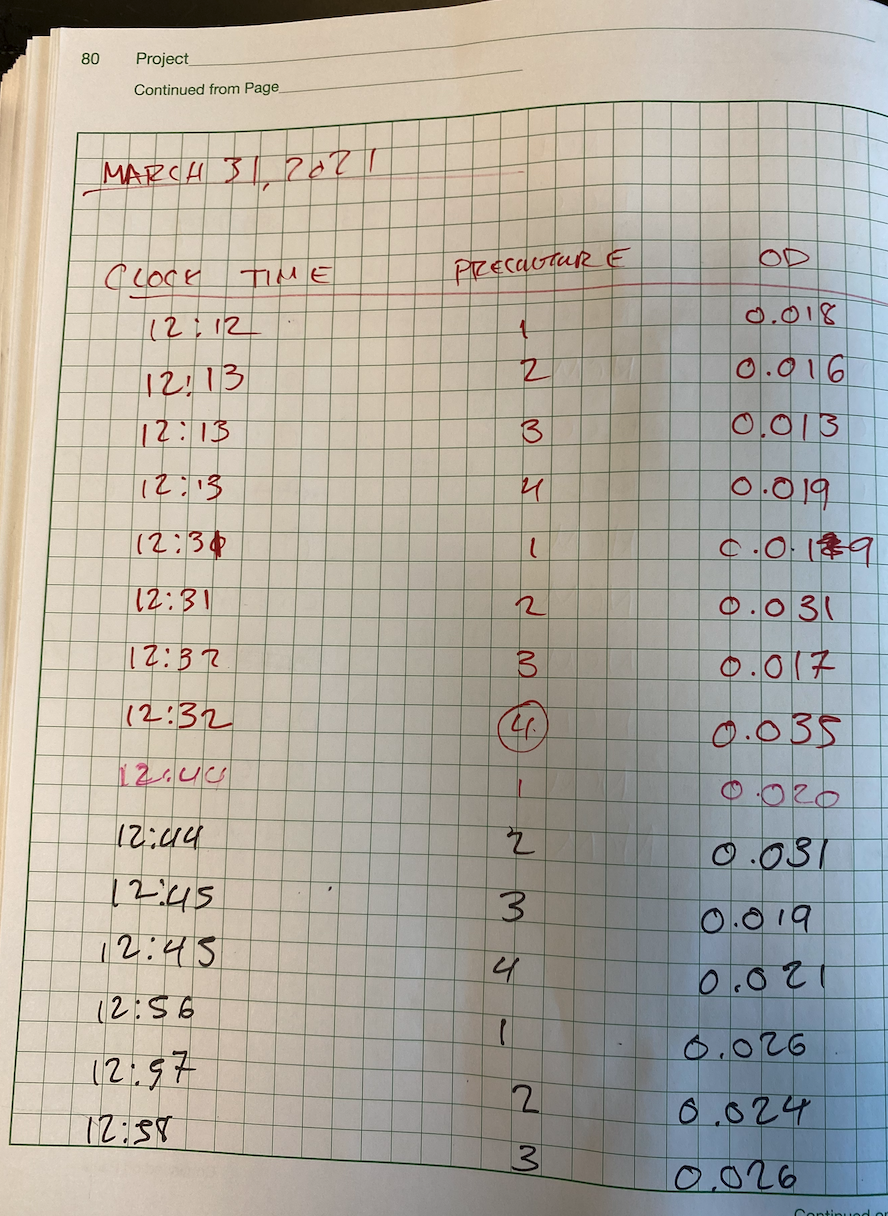 80 Project
Continued from Page
MARCH 31, 2021
CLOCK TIME PRECULTURE OD
12:12 1 0.018
12:13 2 0.016
12:13 3 0.013
12:13 4 0.019
12:31 1
12:31 2 0.031
12:32 3 0.017
12:32 4 0.035
1 0.020
12:44 2 0.031
12:45 3 0.019
12:45 4 0.021
12:56 1 0.026
12:57 2 0.024
12:58 3 0.026